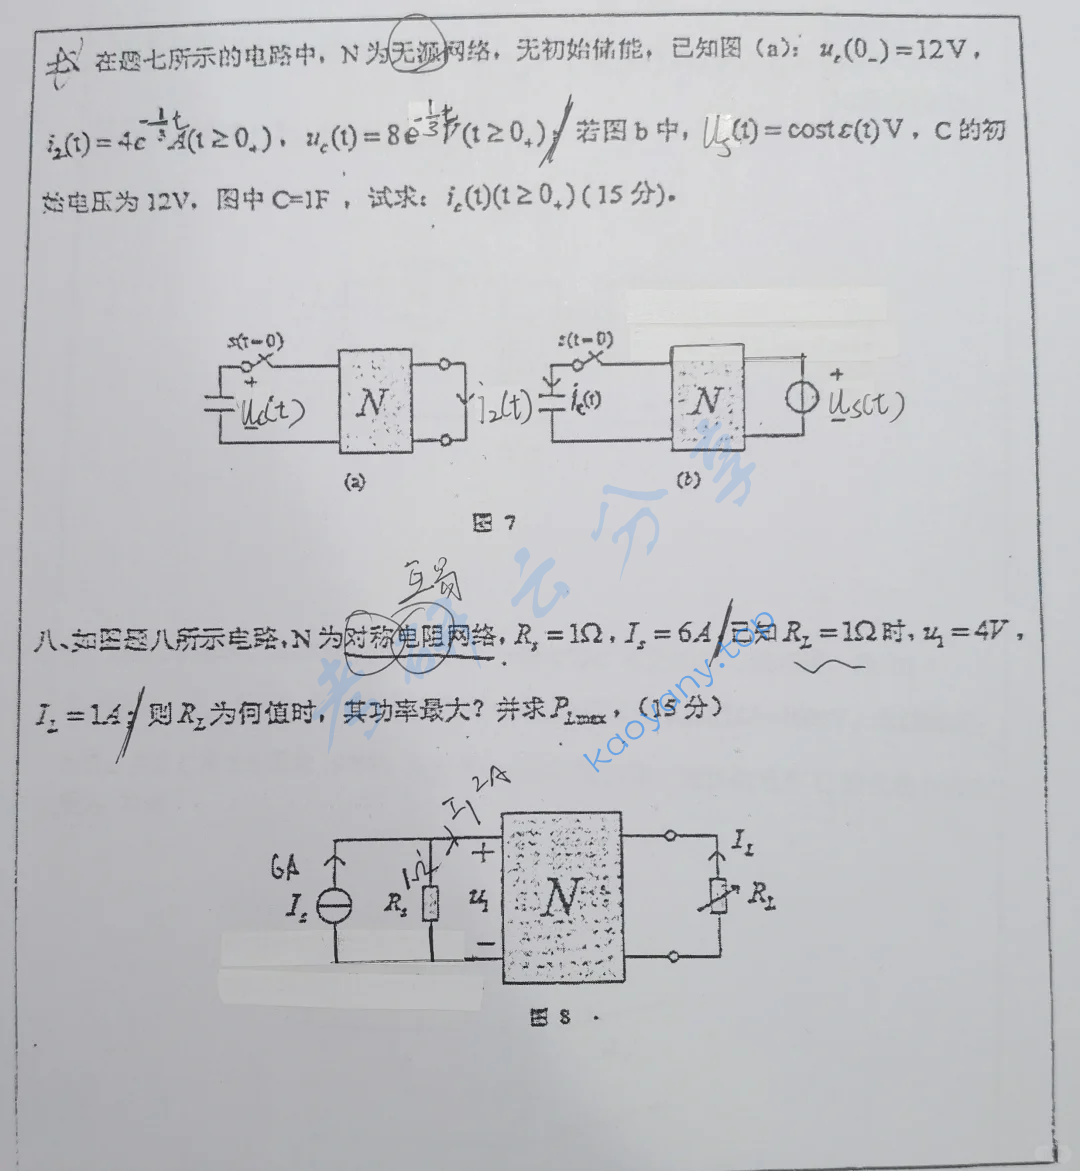 七 在题七所示的电路中，N为无源网络，无初始储能，已知图（a）：u_c(0_-)=12V，
i₂(t)=4e^{-\frac{1}{3}t}A(t≥0₊)，u_c(t)=8e^{-\frac{1}{3}t}V(t≥0₊)；若图b中，U_S(t)=costε(t)V，C的初
始电压为12V．图中C=1F，试求：i_c(t)(t≥0₊)（15分）。
s(t=0)
s(t=0)
+
u_c(t)
-
N
i₂(t)
i_c(t)
N
+
U_S(t)
-
(a)
(b)
图 7
互易
八、如图题八所示电路，N为对称电阻网络，R_s=1Ω，I_s=6A，已知R_L=1Ω时，u₁=4V，
I_L=1A；则R_L为何值时，其功率最大？并求P_{Lmax}，（15分）
I₁ 2A
6A
I_s
1Ω
R_s
+
u₁
-
N
I_L
R_L
图 8
考研云分享
kaoyany.top